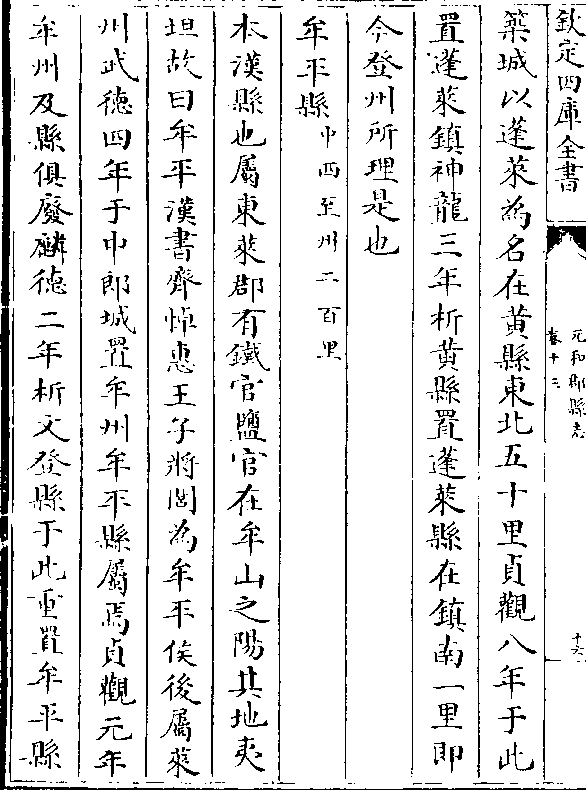 欽定四庫全書
元和郡縣志
卷十三
十六
築城以蓬萊為名在黄縣東北五十里貞觀八年于此
置蓬萊鎮神龍三年析黄縣置蓬萊縣在鎮南一里即
今登州所理是也
牟平縣中西至州二百里
本漢縣也屬東萊郡有鐵官鹽官在牟山之陽其地夷
坦故曰牟平漢書齊悼惠王子將閭為牟平侯後屬萊
州武德四年于中郎城置牟州牟平縣屬焉貞觀元年
牟州及縣俱廢麟德二年析文登縣于此重置牟平縣